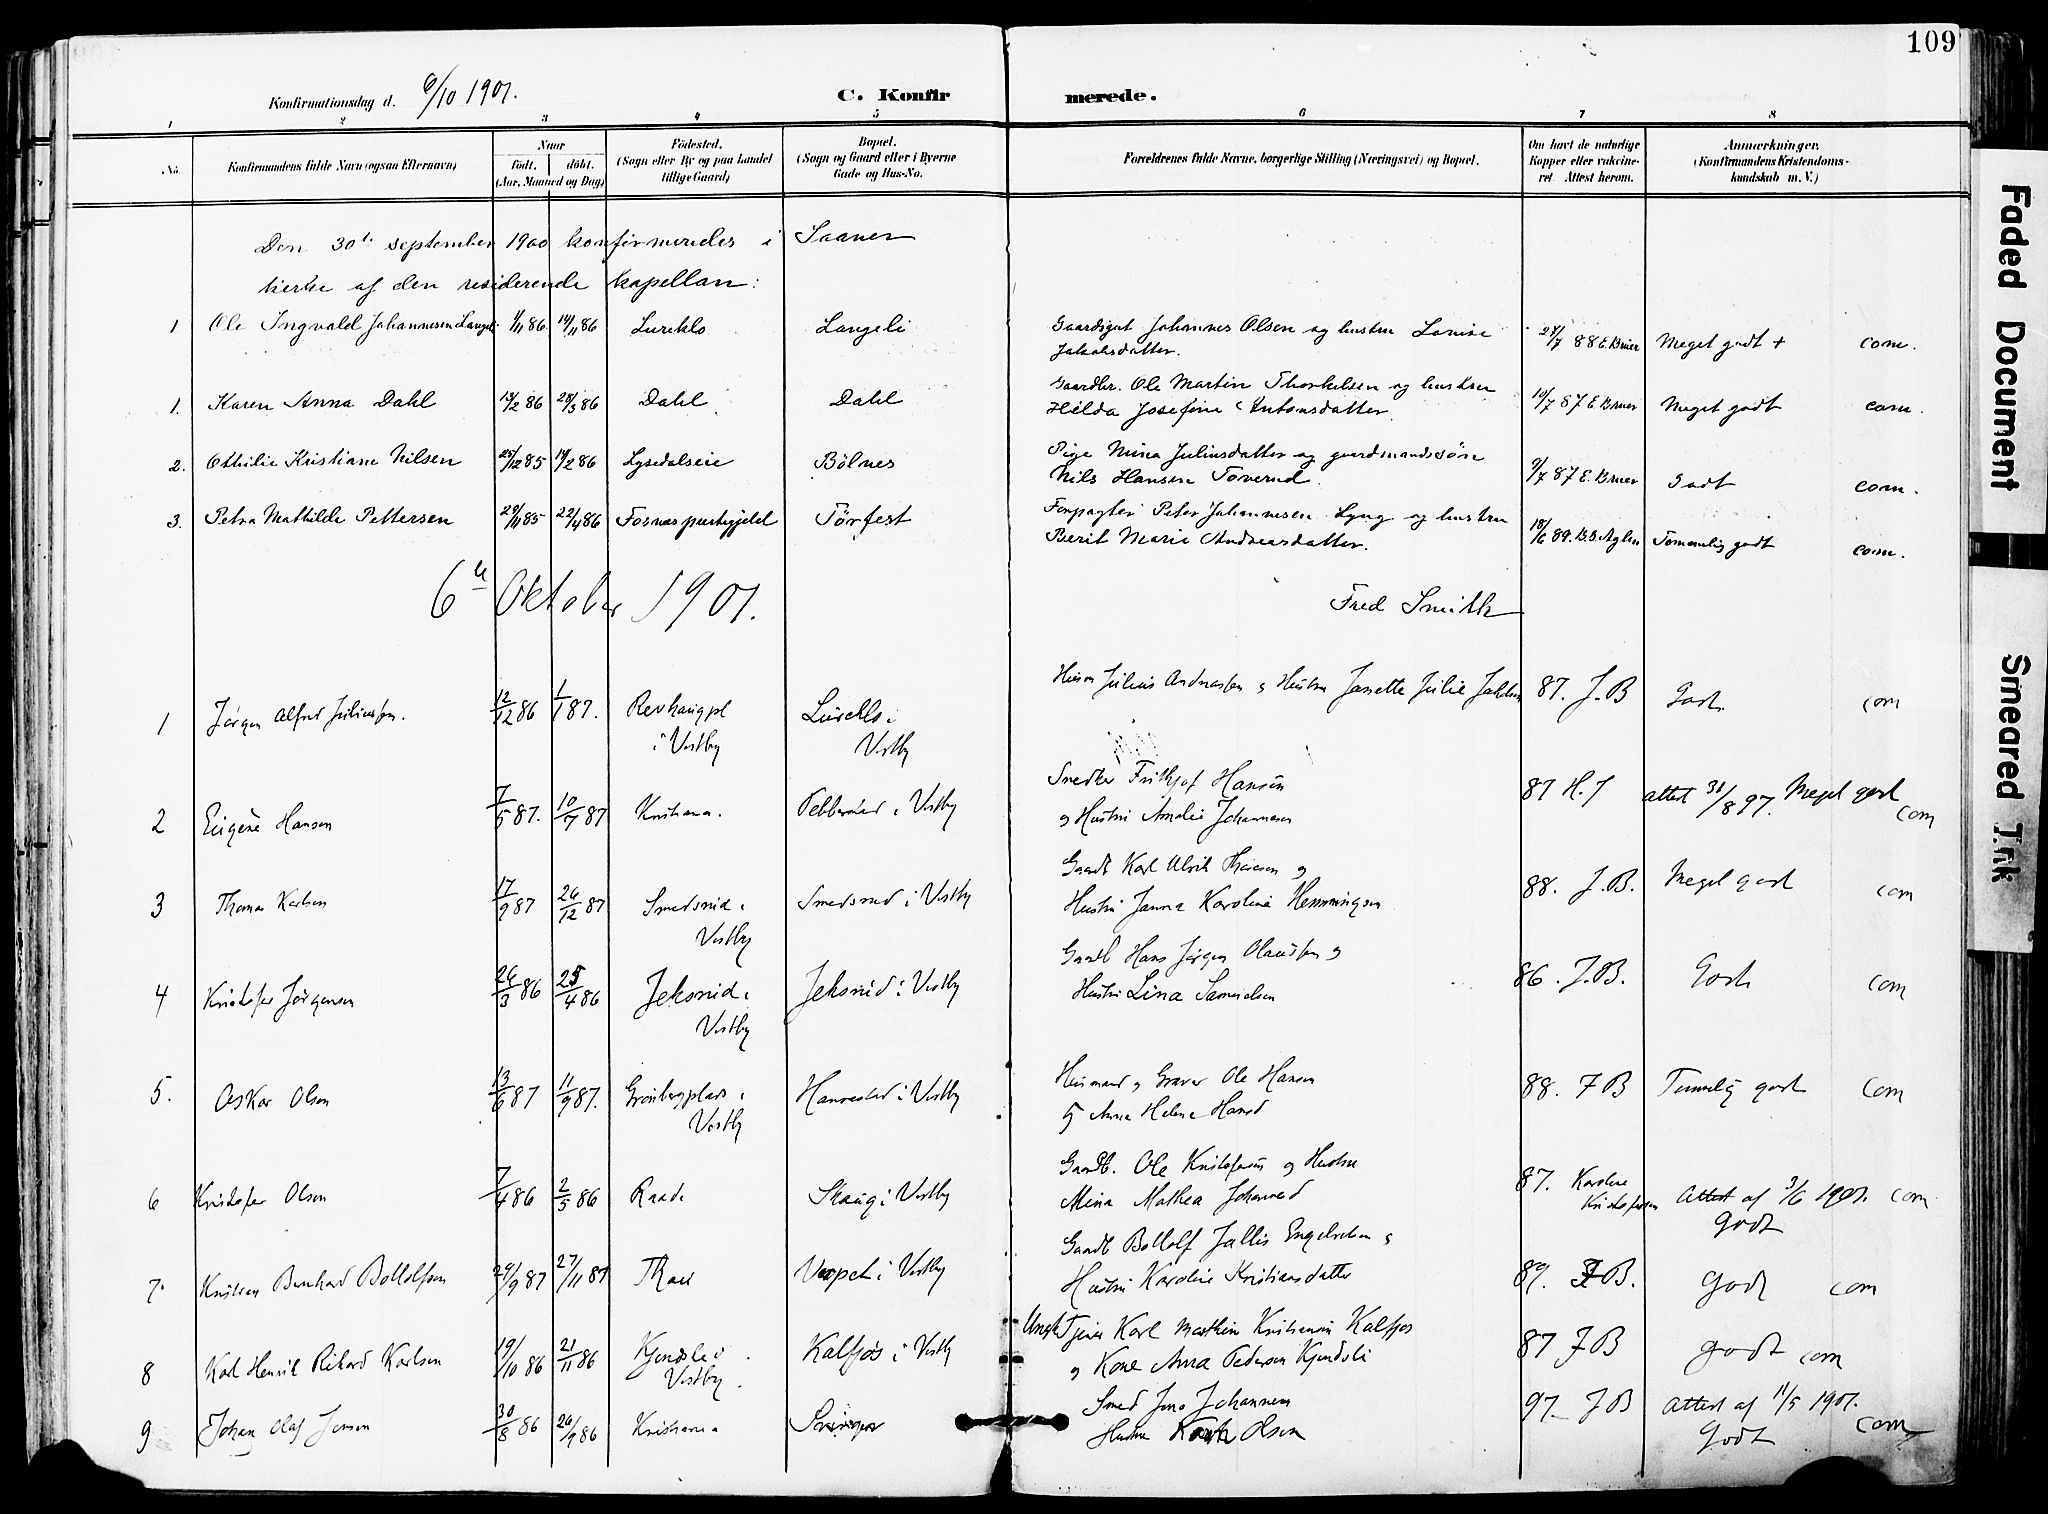 109
Konfirmationsdag d. 6/10 1901.
C. Konfirmerede.
1 2 3 4 5 6 7 8
No.
Konfirmandens fulde Navn (ogsaa Efternavn)
Naar
födt. döbt.
(Aar, Maaned og Dag)
Födested.
(Sogn eller By og paa Landet
tillige Gaard)
Bopæl.
(Sogn og Gaard eller i Byerne
Gade og Hus-No.
Forældrenes fulde Navne, borgerlige Stilling (Næringsvei) og Bopæl.
Om havt de naturlige
Kopper eller vakcine-
ret Attest herom.
Anmerkninger.
(Konfirmandens Kristendoms-
kundskab m. V.)
Den 30te september 1900 konfirmeredes i Saaner
kirke af den residerende kapellan:
1 Ole Ingvald Johannesen Langeli 1/11 86. 14/11 86 Lureklo Langeli Gaardsgut Johannes Olsen og hustru Lovise
Jakobsdatter. 27/7 88 E. Bruer Meget godt + com.
1. Karen Anna Dahl 13/2 86 28/3 86 Dahl Dahl Gaardbr. Ole Martin Thorkelsen og hustru
Hilda Josefine Antonsdatter. 10/7 87 E. Bruer Meget godt com.
2. Othilie Kristiane Nilsen 25/12 85 14/2 86 Lysedalseie Bölnes Pige Mina Juliusdatter og gaardmandssön
Nils Hansen Toverud. 9/7 87 E. Bruer Godt com.
3. Petra Mathilde Pettersen 29/11 85 22/4 86 Fosnæs præstegjeld Törfest Forpagter Peter Johannesen Lyng og hustru
Berit Marie Andreasdatter. 18/6 89. Temmelig godt com.
6te Oktober 1901. Fred Smith
1 Jørgen Alfred Juliussen. 12/12 86 1/1 87. Revhaugpl
i Vestby Lüreklo i
Vestby Husm Julius Andreassen og Hustru Josette Julie 87. J.B Godt com
2 Eugene Hansen 7/5 87. 10/7 87 Kristiania. i Vestby Snedker Frithjof Hansen
og Hustru Amalie Johannesen 87 H.J attest 30/8 97. Meget godt com
3 Thomas Karlsen 17/9 87 26/12 87 Smedsrud i
Vestby Smedsrud i Vestby Gaardb Karl Ulrik Thoresen og
Hustru Janna Karoline Hemmingsen 88. J.B. Meget godt com
4 Kristofer Jørgensen 26/3 86 25/4 86 Jeksrud i
Vestby Jeksrud i Vestby Gaardb Hans Jørgen Olaussen og
Hustru Lina Samuelsen 86. J.B. Godt com
5. Oskar Olsen 13/6 87 11/9 87. Grønbergplads i
Vestby Hannestad i Vestby Husmand og Graver Ole Hansen
og Anna Helene Hansd 88. J B Temmelig godt com
6 Kristofer Olsen 7/4 86 2/5 86 Raade Skaug i Vestby Gaardb. Ole Kristofersen og Hustru
Mina Mathea Johannesd 87. Karoline
Kristofersen Attest af 3/6 1901. com
Godt
7. Kristian Bernhard Bottolfsen 24/9 87 27/11 87 Vestby Gaardb Bottolf Jallis Engelretsen og
Hustru Karoline Kristiansdatter 89. J B. Godt com
8 Karl Henrik Rikard Karlsen 19/10 86 21/11 86 Kjendsle i
Vestby. Kalfjøs i Vestby Ungk Tjener Karl Marthin Kristiansen Kalfjøs
og Kone Anna Pedersen Kjendsli 87 J B godt com
9 Johan Olaf Jensen 30/8 86 26/9 86 Kristiania Smed Jens Johannesen
Hustru Olsen 97. J B Attest af 11/5 1901.
Godt com
Faded Document
Smeared Ink